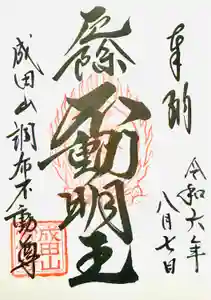 奉納
令和六年
八月七日
不動明王
成田山調布不動尊
成田山